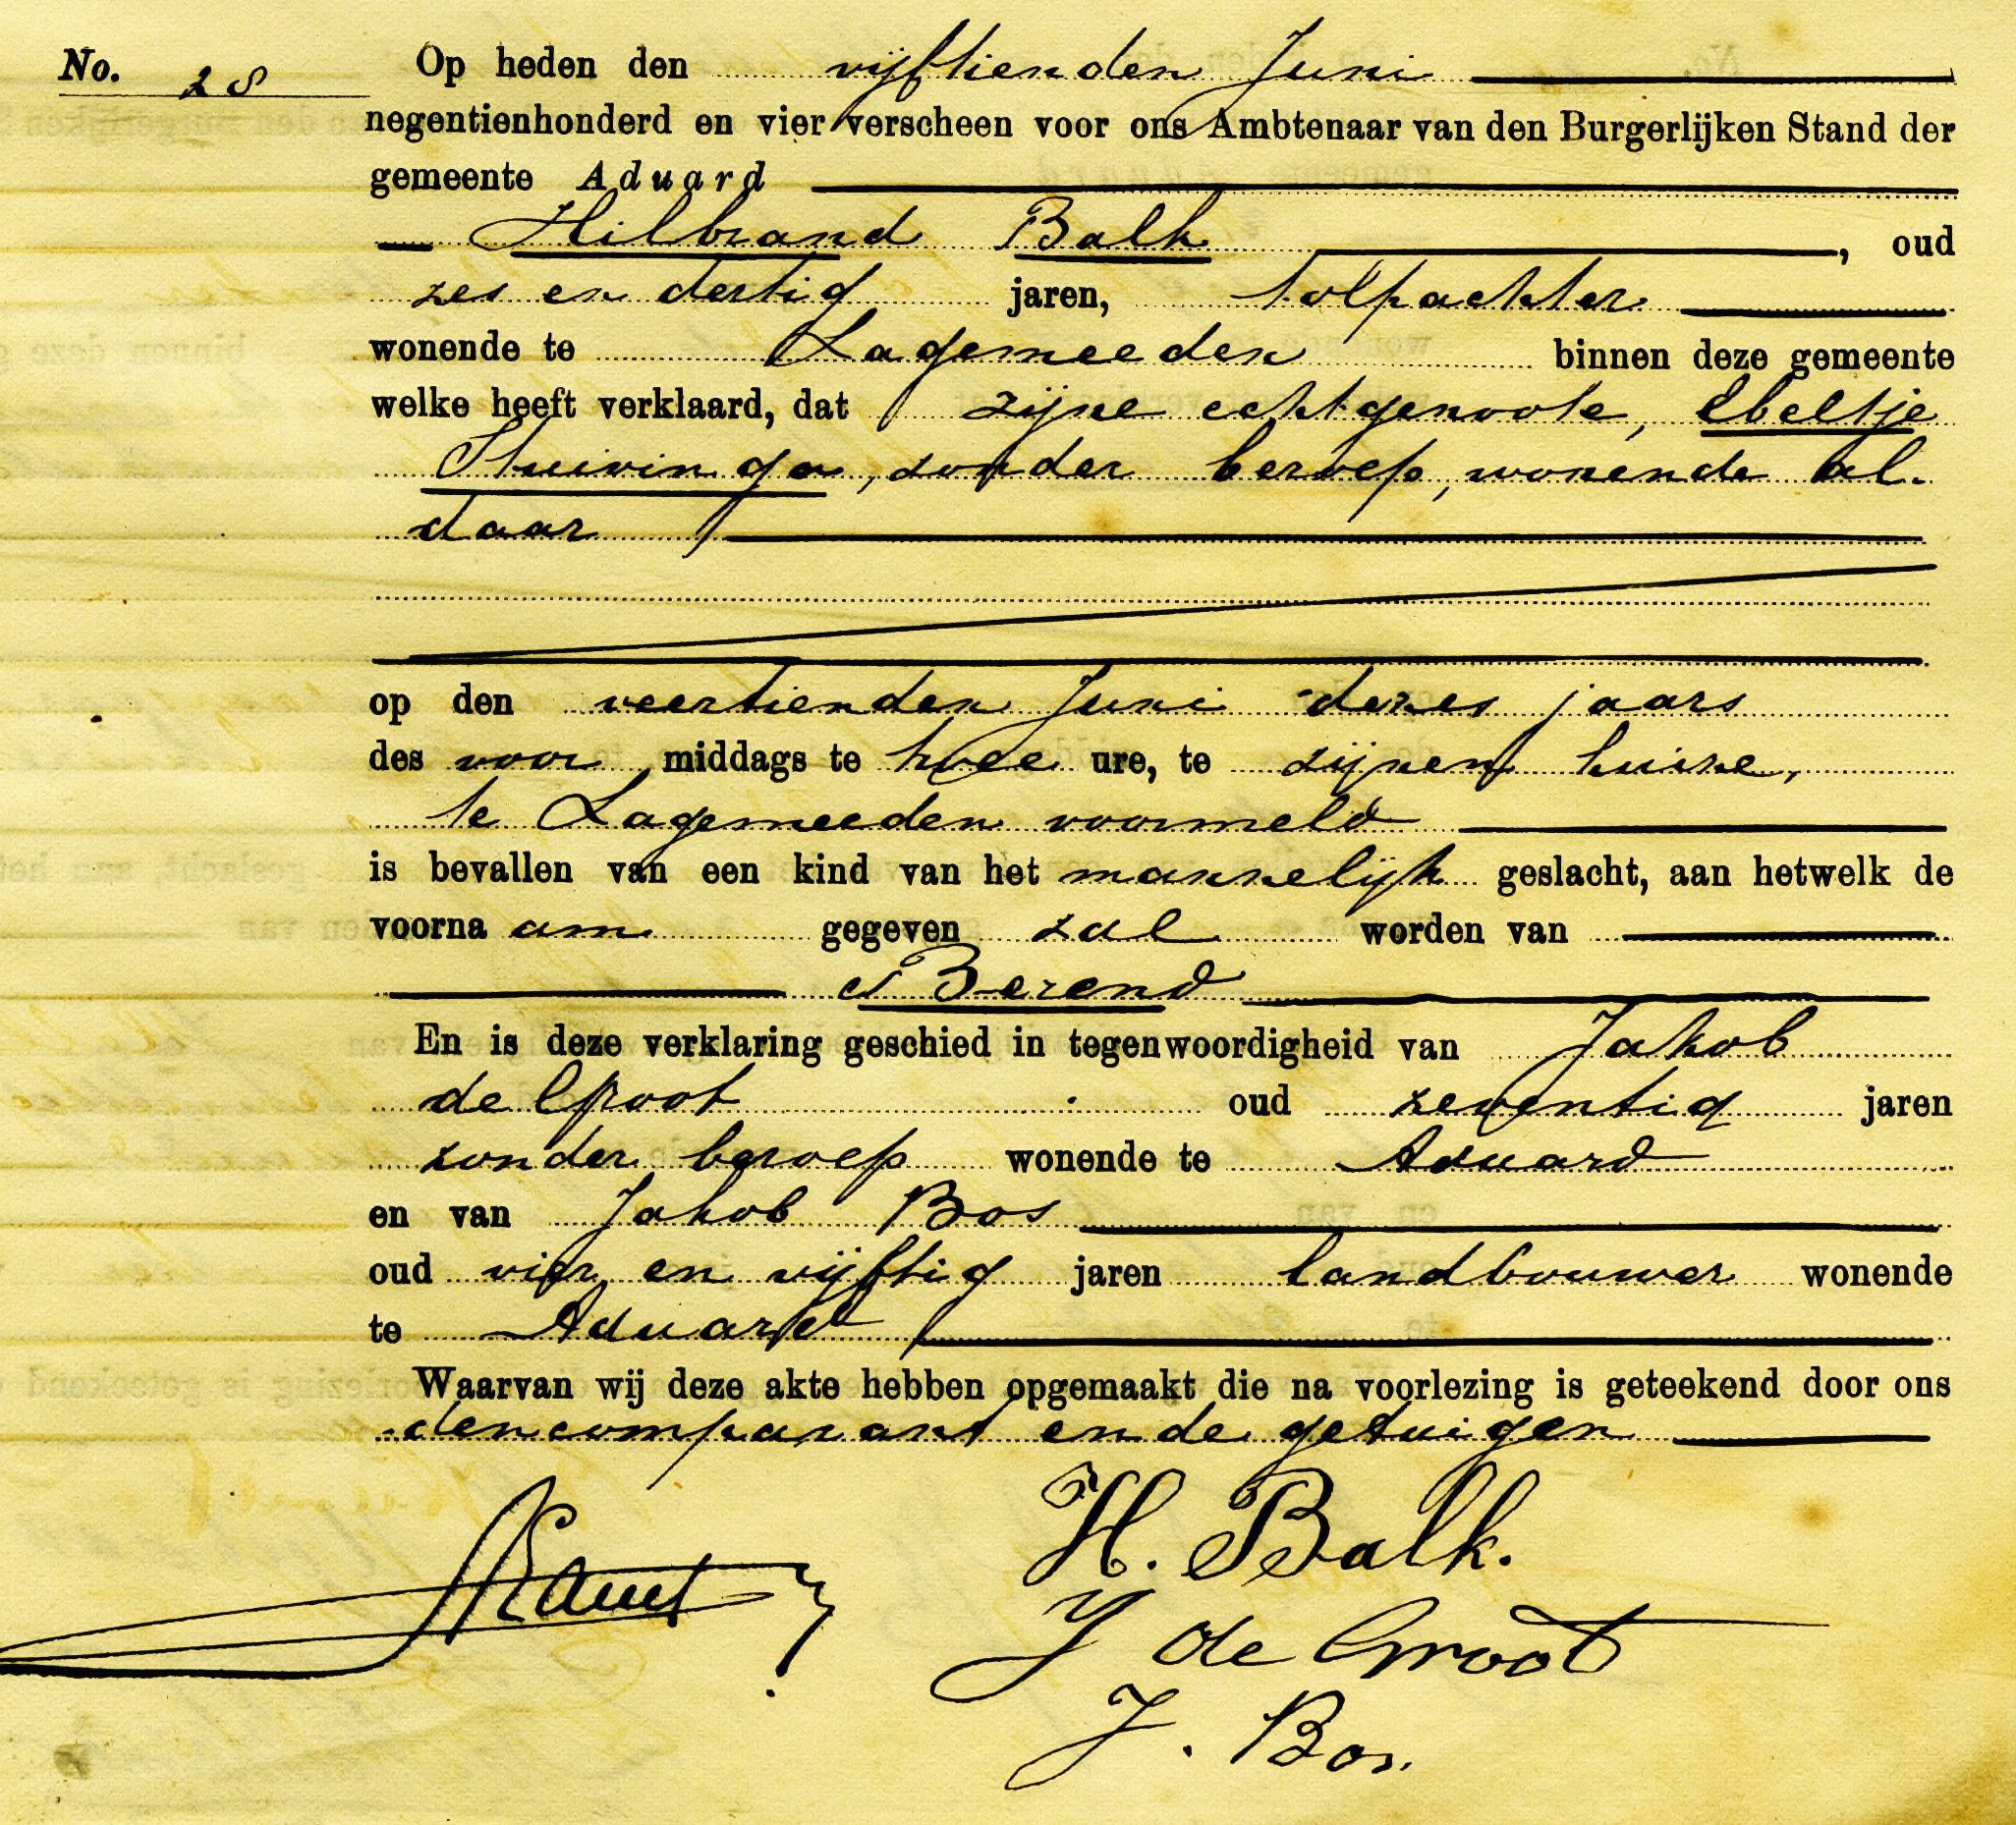 No. 28
Op heden den vijftienden Juni
negentienhonderd en vier verscheen voor ons Ambtenaar van den Burgerlijken Stand der
gemeente Aduard
Hilbrand Balk, oud
zes en dertig jaren, tolpachter
wonende te Lagemeeden binnen deze gemeente
welke heeft verklaard, dat zijne echtgenoote, Ebeltje
Stuivinga, zonder beroep, wonende al-
daar
op den veertienden Juni dezes jaars
des voor middags te twee ure, te zijnen huize,
te Lagemeeden voormeld
is bevallen van een kind van het mannelijk geslacht, aan hetwelk de
voornaam gegeven zal worden van
Berend
En is deze verklaring geschied in tegenwoordigheid van Jakob
de Groot oud zeventig jaren
zonder beroep wonende te Aduard
en van Jakob Bos
oud vier en vijftig jaren landbouwer wonende
te Aduard
Waarvan wij deze akte hebben opgemaakt die na voorlezing is geteekend door ons
den comparant en de getuigen
H. Balk.
J de Groot
J. Bos.